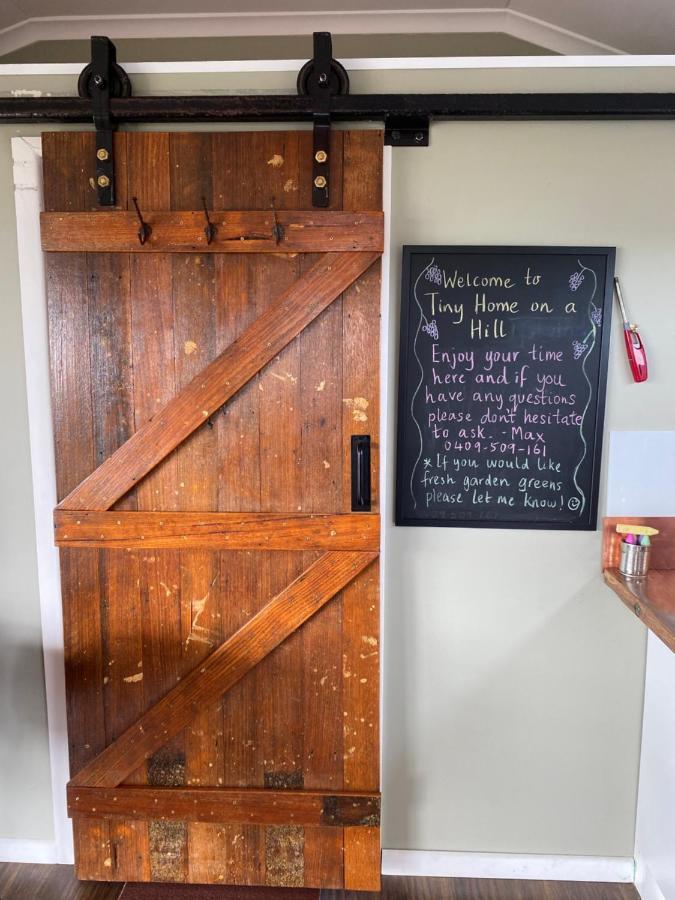 Welcome to
Tiny Home on a
Hill
Enjoy your time
here and if you
have any questions
please don't hesitate
to ask. - Max
0409-509-161
* If you would like
fresh garden greens
please let me know! ☺